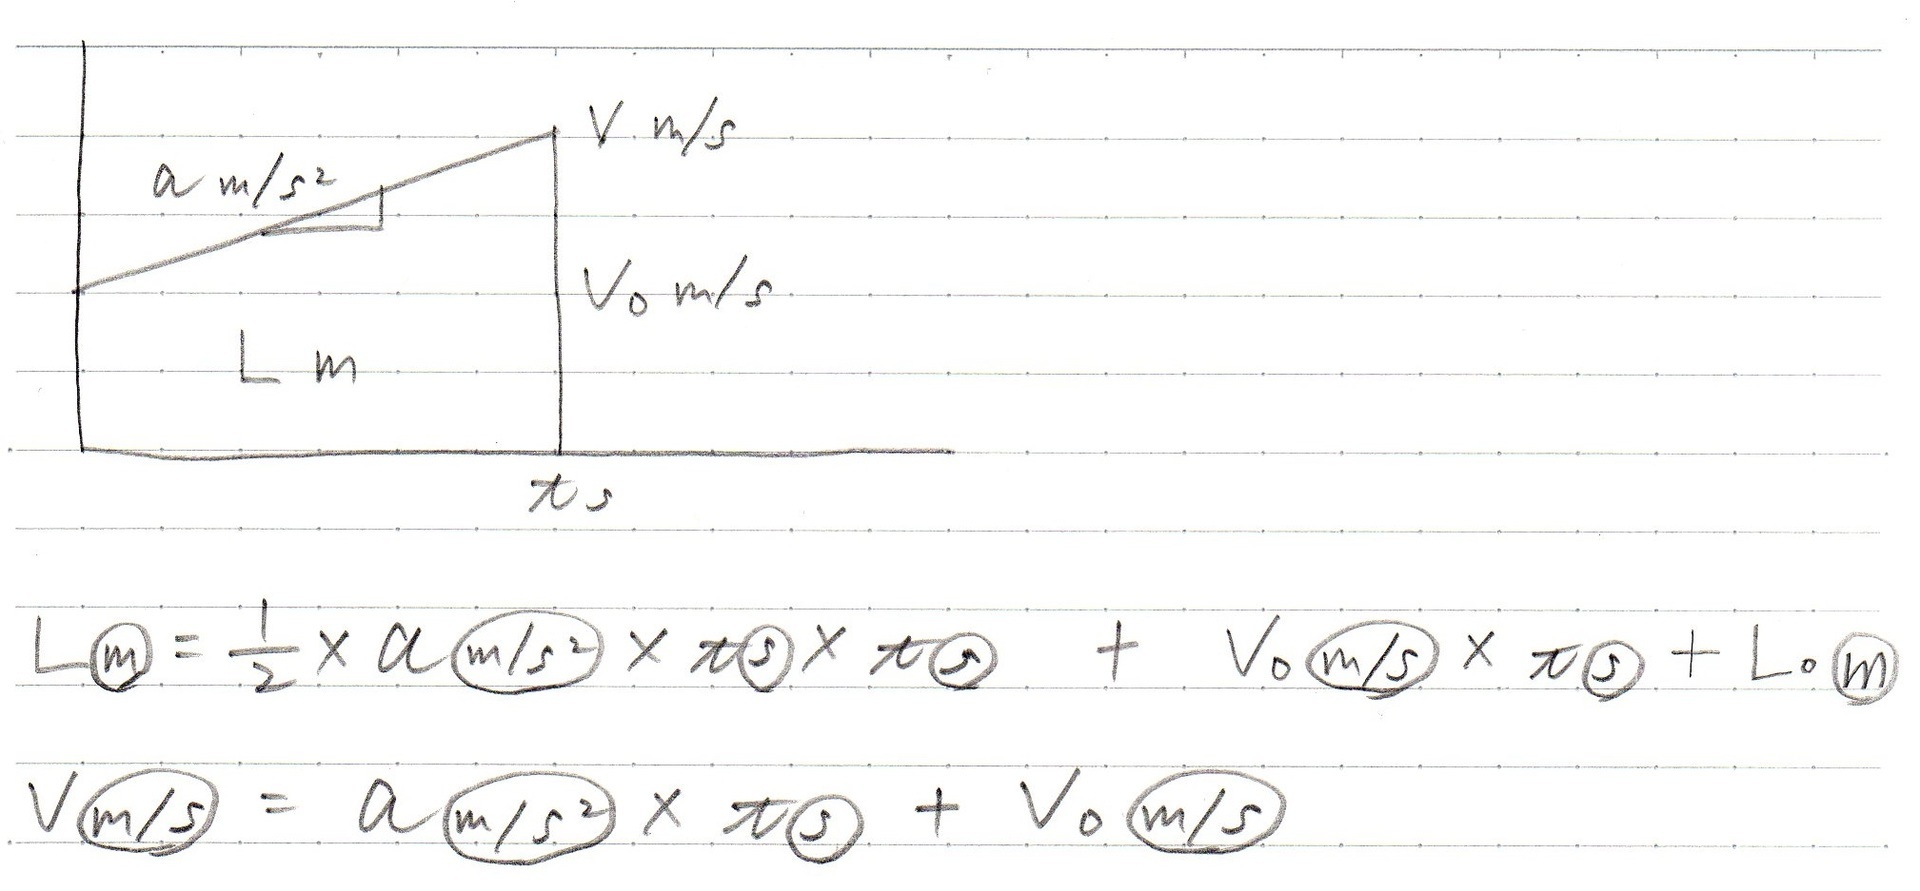 V m/s
a m/s²
V₀ m/s
L m
t s
L m = 1/2 × a m/s² × t s × t s + V₀ m/s × t s + L₀ m
V m/s = a m/s² × t s + V₀ m/s